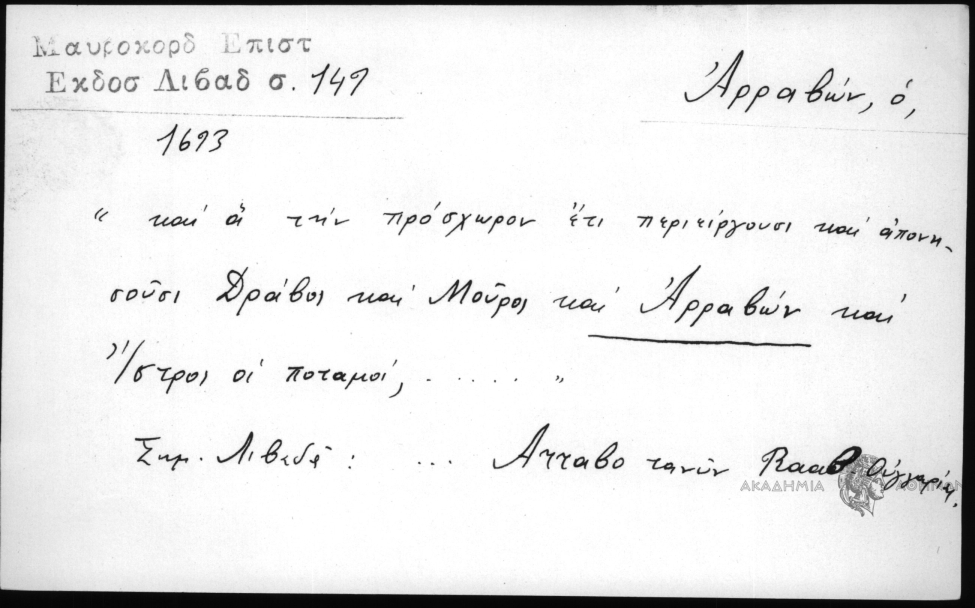 Μαυροκορδ Επιστ
Εκδοσ Λιβαδ σ. 149
Ἀρραβών, ὁ,
1693
“ καὶ ἃ τὴν πρόσχωρον ἔτι περιείργουσι καὶ ἀπονη-
σοῦσι Δράβος και Μοῦρος καὶ Ἀρραβών καὶ
Ἴστρος οἱ ποταμοί, . . . . . . ”
Σημ. Λιβαδᾶ : ... τανῦν Raab Οὑγγαρίας.
ΑΚΑΔΗΜΙΑ ΑΘΗΝΩΝ